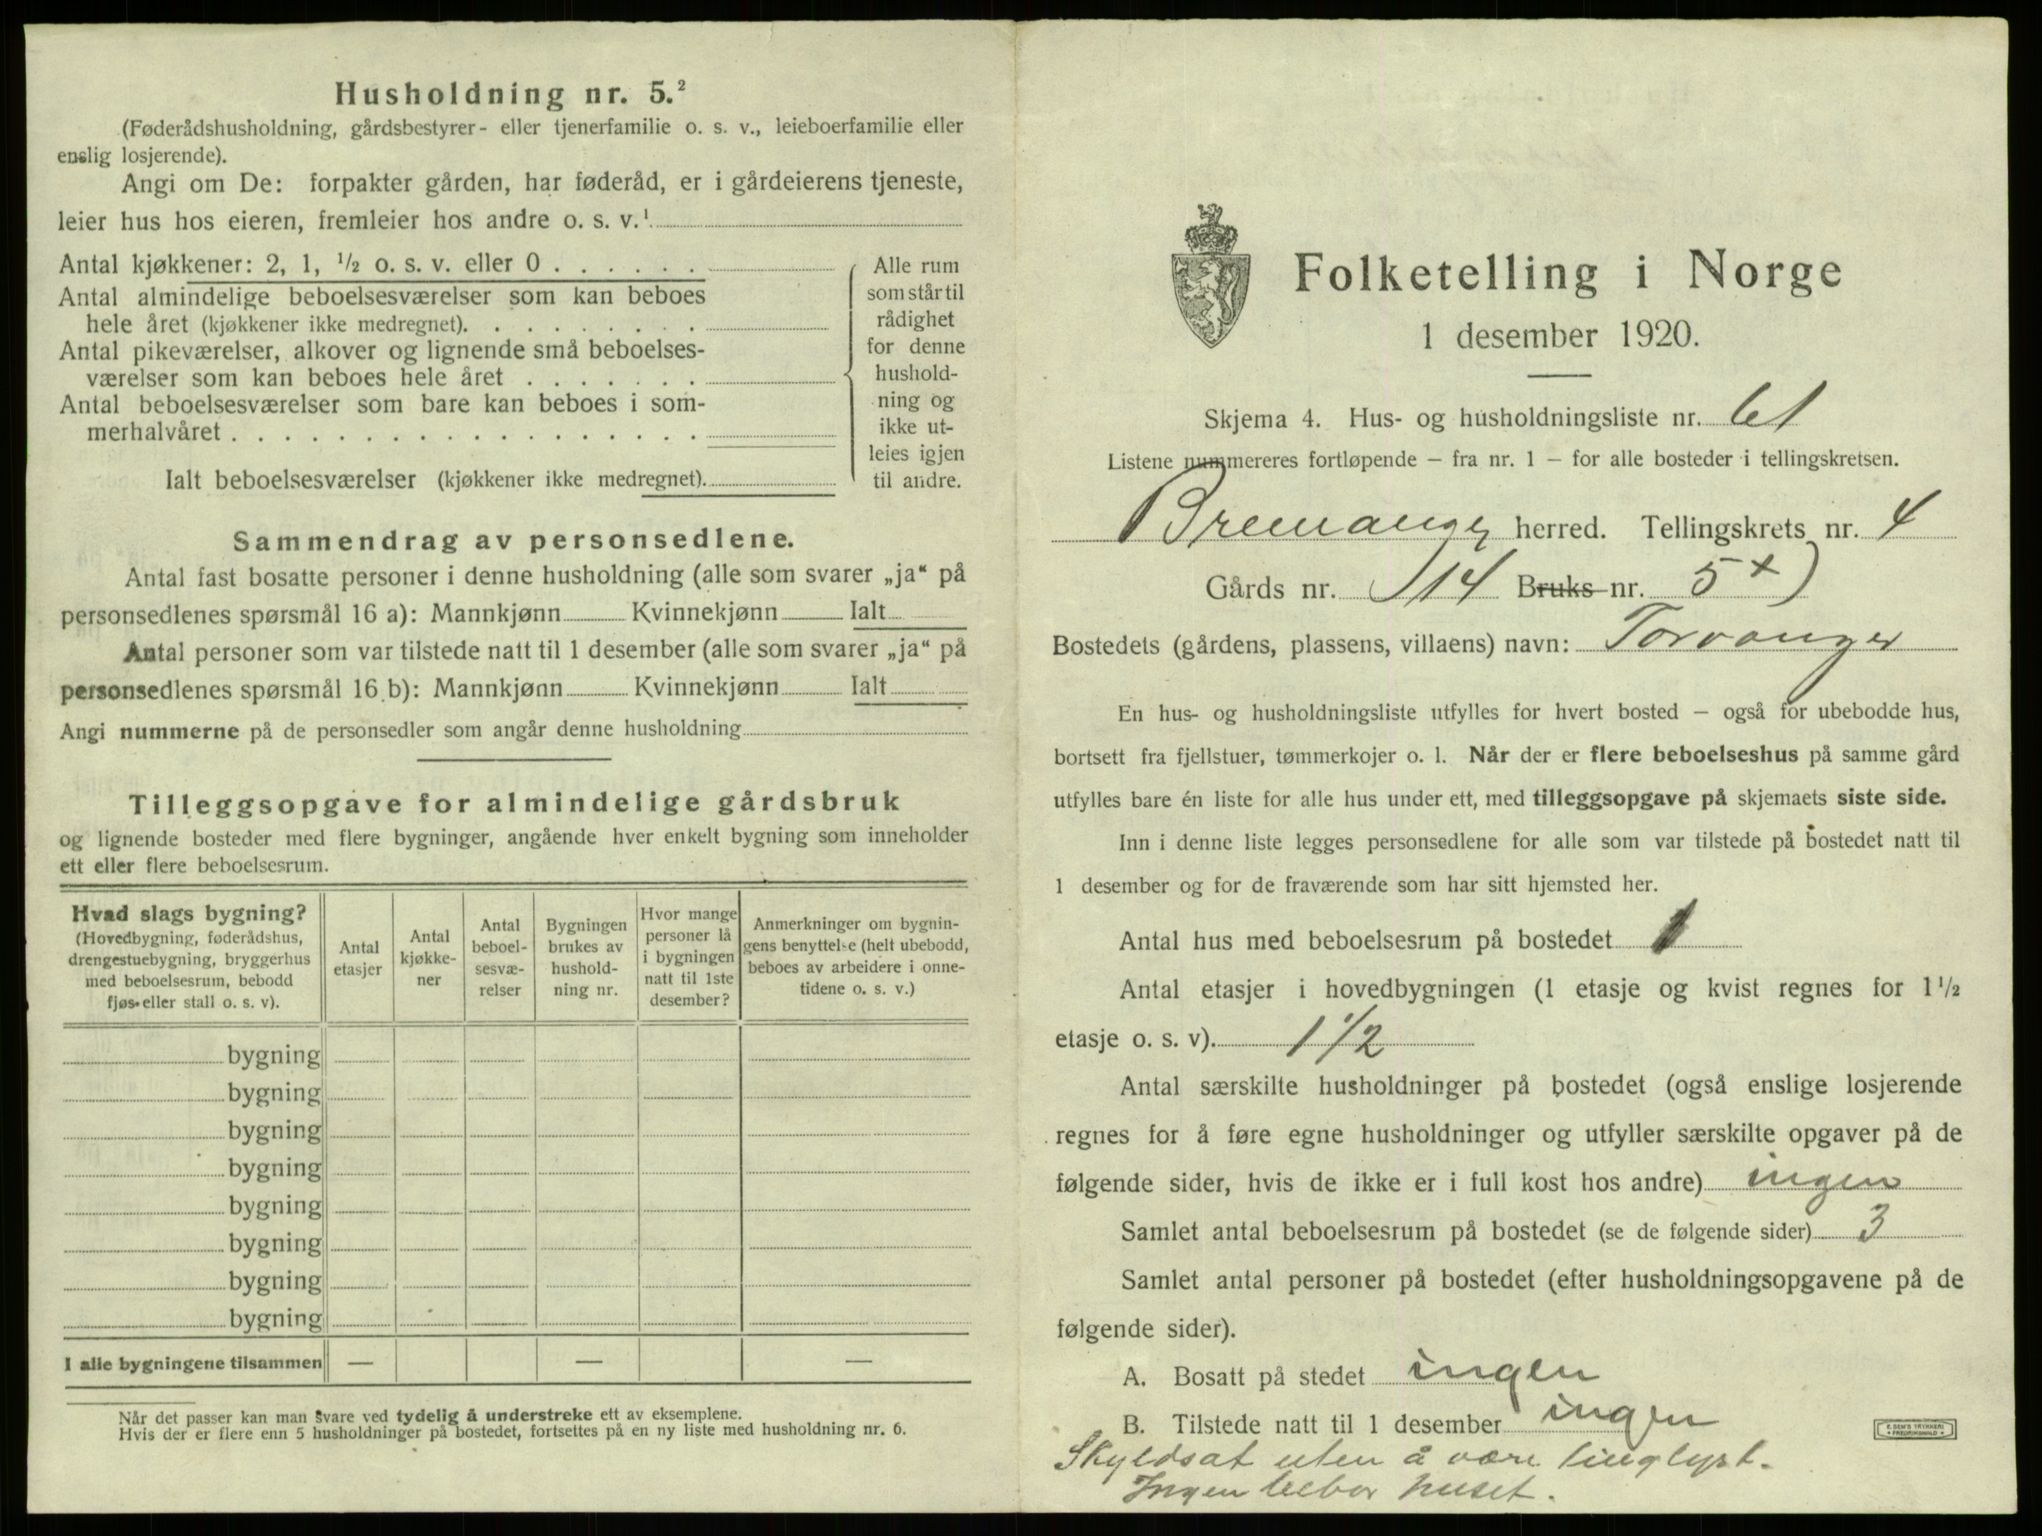 Husholdning nr. 5.²
(Føderådshusholdning, gårdsbestyrer- eller tjenerfamilie o. s. v., leieboerfamilie eller
enslig losjerende).
Angi om De: forpakter gården, har føderåd, er i gårdeierens tjeneste,
leier hus hos eieren, fremleier hos andre o. s. v.¹
Antal kjøkkener: 2, 1, ½ o. s. v. eller 0 . . . . . .
Antal almindelige beboelsesværelser som kan beboes
hele året (kjøkkener ikke medregnet). . . . . . . . .
Antal pikeværelser, alkover og lignende små beboelses-
værelser som kan beboes hele året . . . . . . .
Antal beboelsesværelser som bare kan beboes i som-
merhalvåret . . . . . . . . . . . . . . . . . .
Ialt beboelsesværelser (kjøkkener ikke medregnet).
Alle rum
som står til
rådighet
for denne
hushold-
ning og
ikke ut-
leies igjen
til andre.
Sammendrag av personsedlene.
Antal fast bosatte personer i denne husholdning (alle som svarer „ja“ på
personsedlenes spørsmål 16 a): Mannkjønn Kvinnekjønn Ialt
Antal personer som var tilstede natt til 1 desember (alle som svarer „ja“ på
personsedlenes spørsmål 16 b): Mannkjønn Kvinnekjønn Ialt
Angi nummerne på de personsedler som angår denne husholdning
Tilleggsopgave for almindelige gårdsbruk
og lignende bosteder med flere bygninger, angående hver enkelt bygning som inneholder
ett eller flere beboelsesrum.
Hvad slags bygning?
(Hovedbygning, føderådshus,
drengestuebygning, bryggerhus
med beboelsesrum, bebodd
fjøs eller stall o. s. v).
Antal
etasjer
Antal
kjøkke-
ner
Antal
beboel-
sesvæ-
relser
Bygningen
brukes av
hushold-
ning nr.
Hvor mange
personer lå
i bygningen
natt til 1ste
desember?
Anmerkninger om bygnin-
gens benyttelse (helt ubebodd,
beboes av arbeidere i onne-
tidene o. s. v.)
bygning
bygning
bygning
bygning
bygning
bygning
bygning
bygning
I alle bygningene tilsammen — — —
Når det passer kan man svare ved tydelig å understreke ett av eksemplene.
Hvis der er flere enn 5 husholdninger på bostedet, fortsettes på en ny liste med husholdning nr. 6.
Folketelling i Norge
1 desember 1920.
Skjema 4. Hus- og husholdningsliste nr. 61
Listene nummereres fortløpende – fra nr. 1 – for alle bosteder i tellingskretsen.
Bremanger herred. Tellingskrets nr. 4
Gårds nr. 114 Bruks nr. 5 x)
Bostedets (gårdens, plassens, villaens) navn: Torvanger
En hus- og husholdningsliste utfylles for hvert bosted – også for ubebodde hus,
bortsett fra fjellstuer, tømmerkojer o. l. Når der er flere beboelseshus på samme gård
utfylles bare én liste for alle hus under ett, med tilleggsopgave på skjemaets siste side.
Inn i denne liste legges personsedlene for alle som var tilstede på bostedet natt til
1 desember og for de fraværende som har sitt hjemsted her.
Antal hus med beboelsesrum på bostedet 1
Antal etasjer i hovedbygningen (1 etasje og kvist regnes for 1½
etasje o. s. v). 1 1/2
Antal særskilte husholdninger på bostedet (også enslige losjerende
regnes for å føre egne husholdninger og utfyller særskilte opgaver på de
følgende sider, hvis de ikke er i full kost hos andre) ingen
Samlet antal beboelsesrum på bostedet (se de følgende sider) 3
Samlet antal personer på bostedet (efter husholdningsopgavene på de
følgende sider).
A. Bosatt på stedet ingen
B. Tilstede natt til 1 desember ingen
Skyldsat uten å være tinglyst.
Ingen bebor huset.